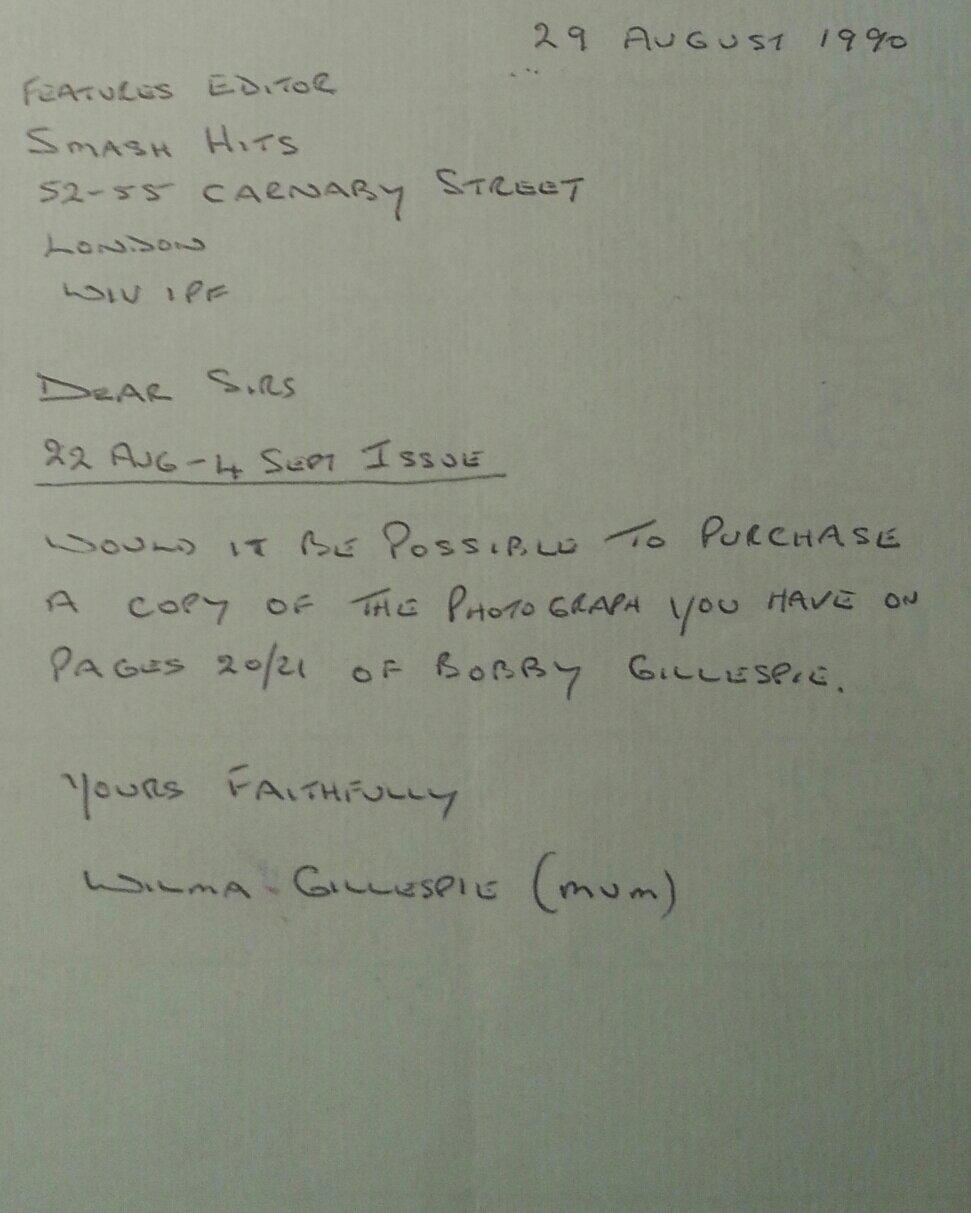 29 AUGUST 1990
FEATURES EDITOR
SMASH HITS
52-55 CARNABY STREET
LONDON
W1V 1PF
DEAR SIRS
22 AUG-4 SEPT ISSUE
WOULD IT BE POSSIBLE TO PURCHASE
A COPY OF THE PHOTOGRAPH YOU HAVE ON
PAGES 20/21 OF BOBBY GILLESPIE.
YOURS FAITHFULLY
WILMA GILLESPIE (MUM)